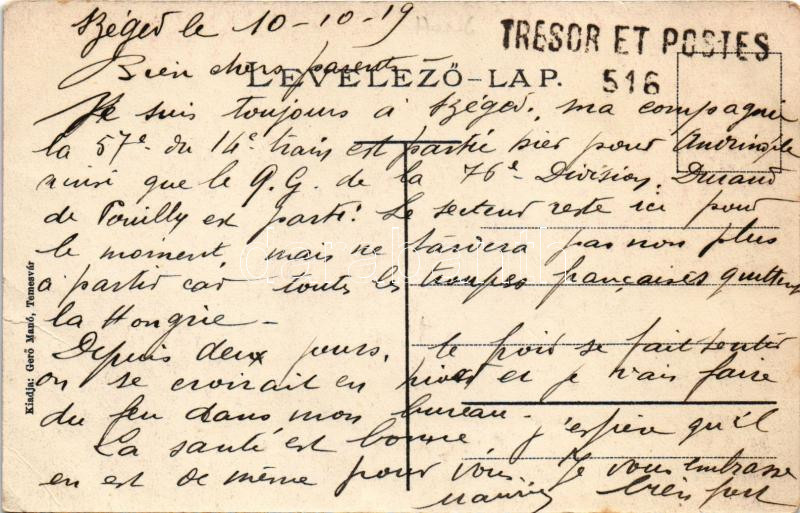 Széged le 10-10-19
TRESOR ET POSTES
516
Bien chers parents
LEVELEZŐ-LAP.
Je suis toujours à Széged, ma compagnie
la 57e du 14e train est partie hier pour Andrinople
ainsi que le Q.G. de la 76e Division, Durand
de Pouilly est parti. Le secteur reste ici pour
le moment, mais ne tardera pas non plus
à partir car toutes les troupes françaises quittent
la Hongrie -
Depuis deux jours, le froid se fait sentir
on se croirait en hiver et je vais faire
du feu dans mon bureau -
La santé est bonne j'espère qu'il
en est de même pour vous Je vous embrasse
bien fort
Kiadja: Gerő Manó, Temesvár
darabanth